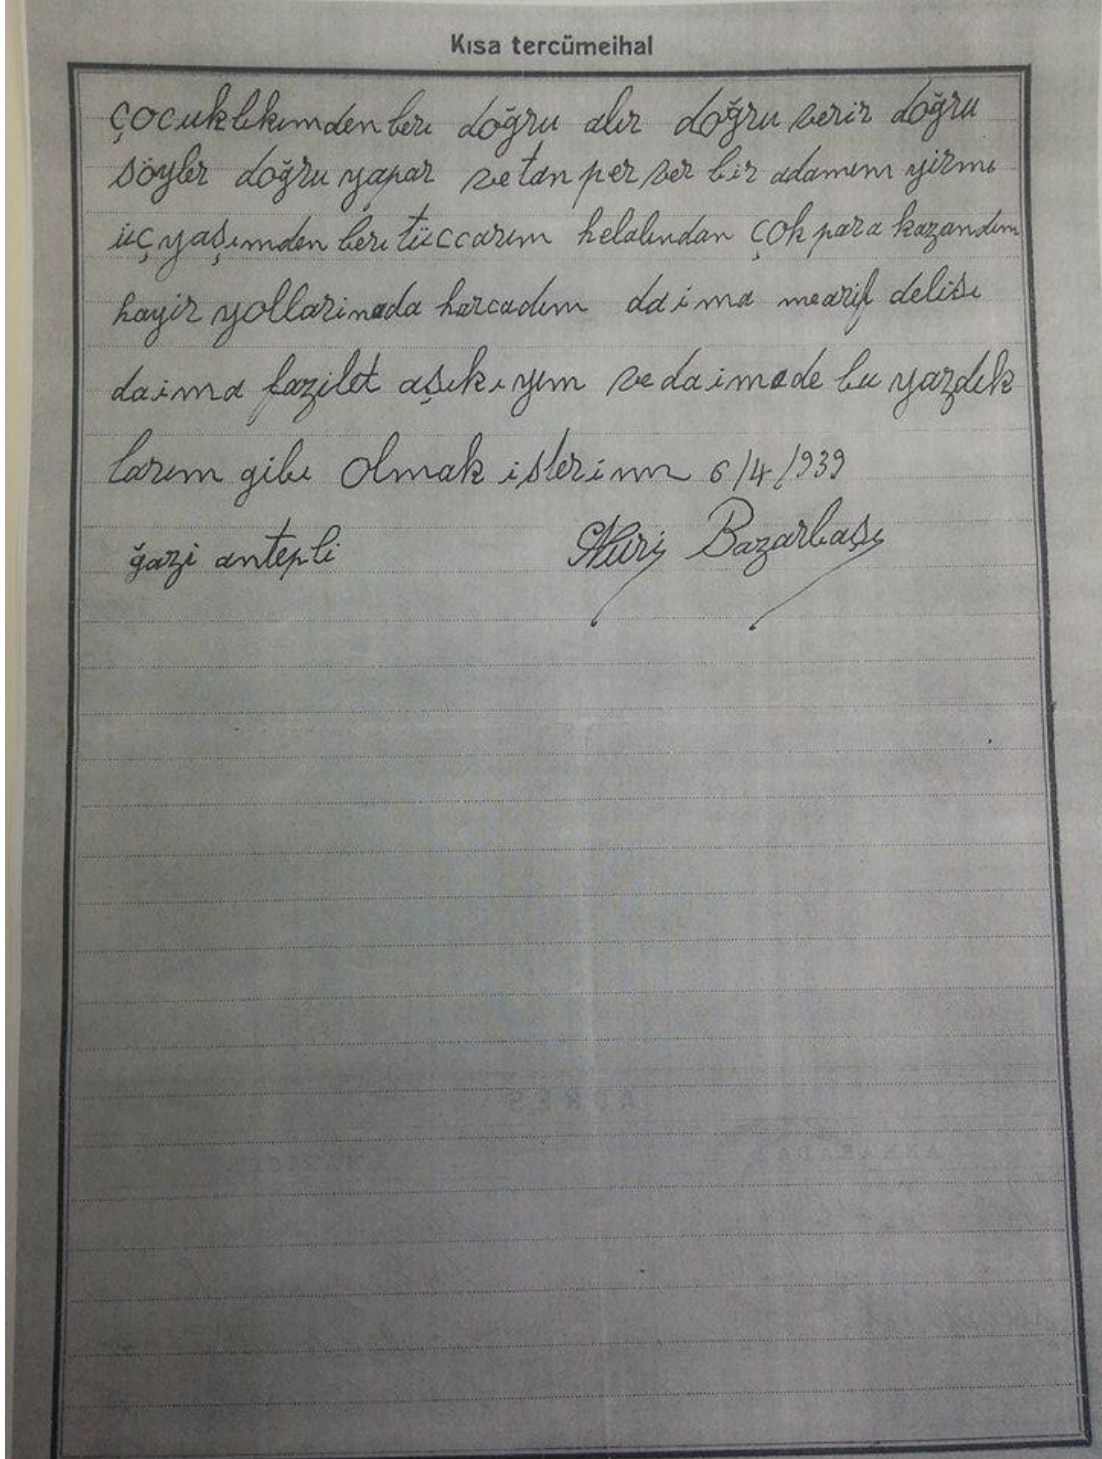 Kısa tercümeihal
çocuklıkımden beri doğru alır doğru verir doğru
söyler doğru yapar vetan perver bir adamım yirmi
üç yaşımden beri tüccarım helalından çok para kazandım
hayir yollarinada harcadım daima mearif delisi
daima fazilet aşıkıyım vedaimade bu yazdık
larım gibi olmak isterim 6/4/939
ğazi antepli Nuri Bazarbaşı
ADRES
ANKARADA